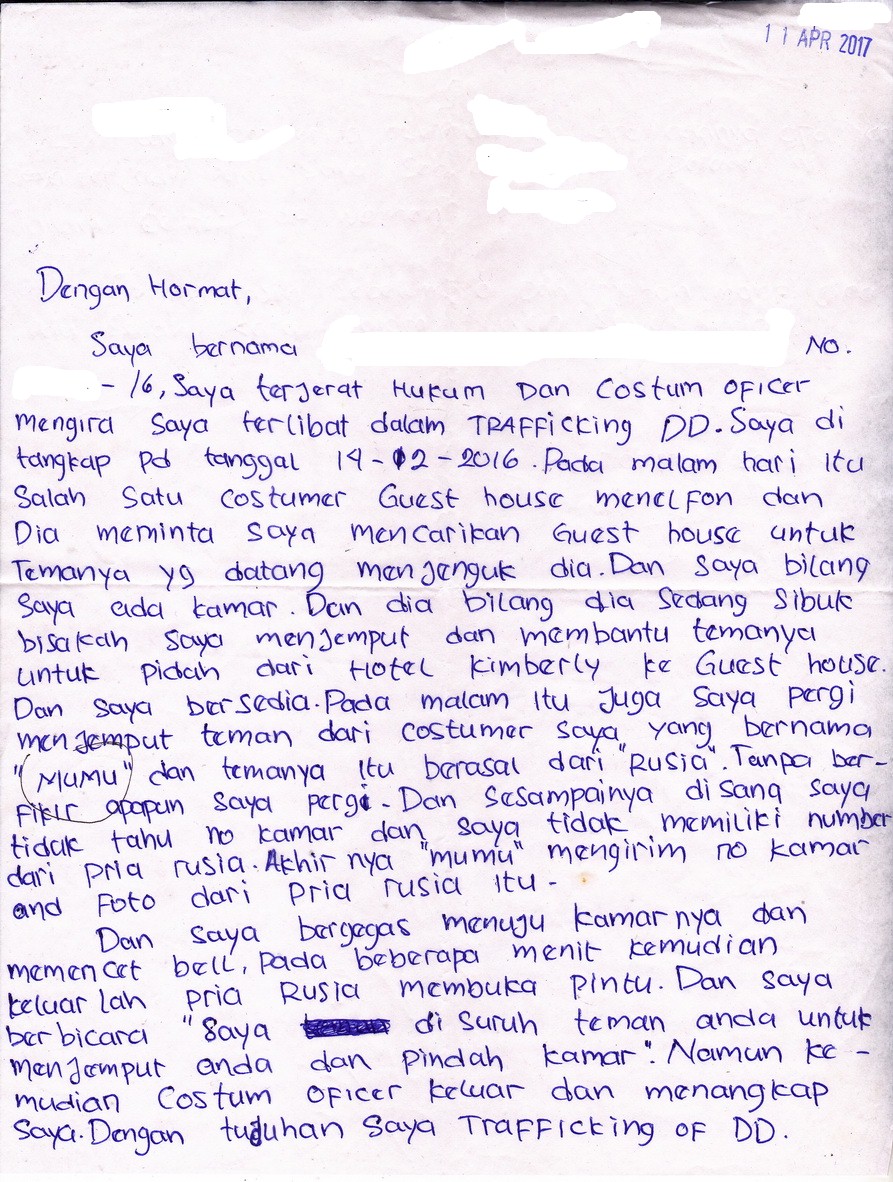 11 APR 2017
Dengan Hormat,
Saya bernama No.
- 16, Saya terjerat Hukum Dan Costum OFicer
mengira Saya terlibat dalam TRAFFicking DD. Saya di
tangkap Pd tanggal 14-02-2016. Pada malam hari itu
Salah Satu Costumer Guest house menelfon dan
Dia meminta Saya mencarikan Guest house untuk
Temanya yg datang menjenguk dia. Dan Saya bilang
Saya ada kamar. Dan dia bilang dia Sedang Sibuk
bisakah Saya menjemput dan membantu temanya
untuk pidah dari Hotel kimberly ke Guest house.
Dan Saya bersedia. Pada malam itu Juga Saya pergi
menjemput teman dari costumer saya yang bernama
"MUMU" dan temanya itu berasal dari "RUSIA". Tanpa ber-
Fikir apapun Saya pergi. Dan Sesampainya disana saya
tidak tahu no kamar dan saya tidak memiliki number
dari pria rusia. Akhirnya "mumu" mengirim no kamar
and Foto dari pria rusia itu-
Dan Saya bergegas menuju kamarnya dan
memencet bell, pada beberapa menit kemudian
keluarlah pria Rusia membuka pintu. Dan Saya
berbicara "Saya di Suruh teman anda untuk
menjemput anda dan pindah kamar". Namun ke-
mudian Costum OFicer keluar dan menangkap
Saya. Dengan tuduhan Saya TraFFicking OF DD.